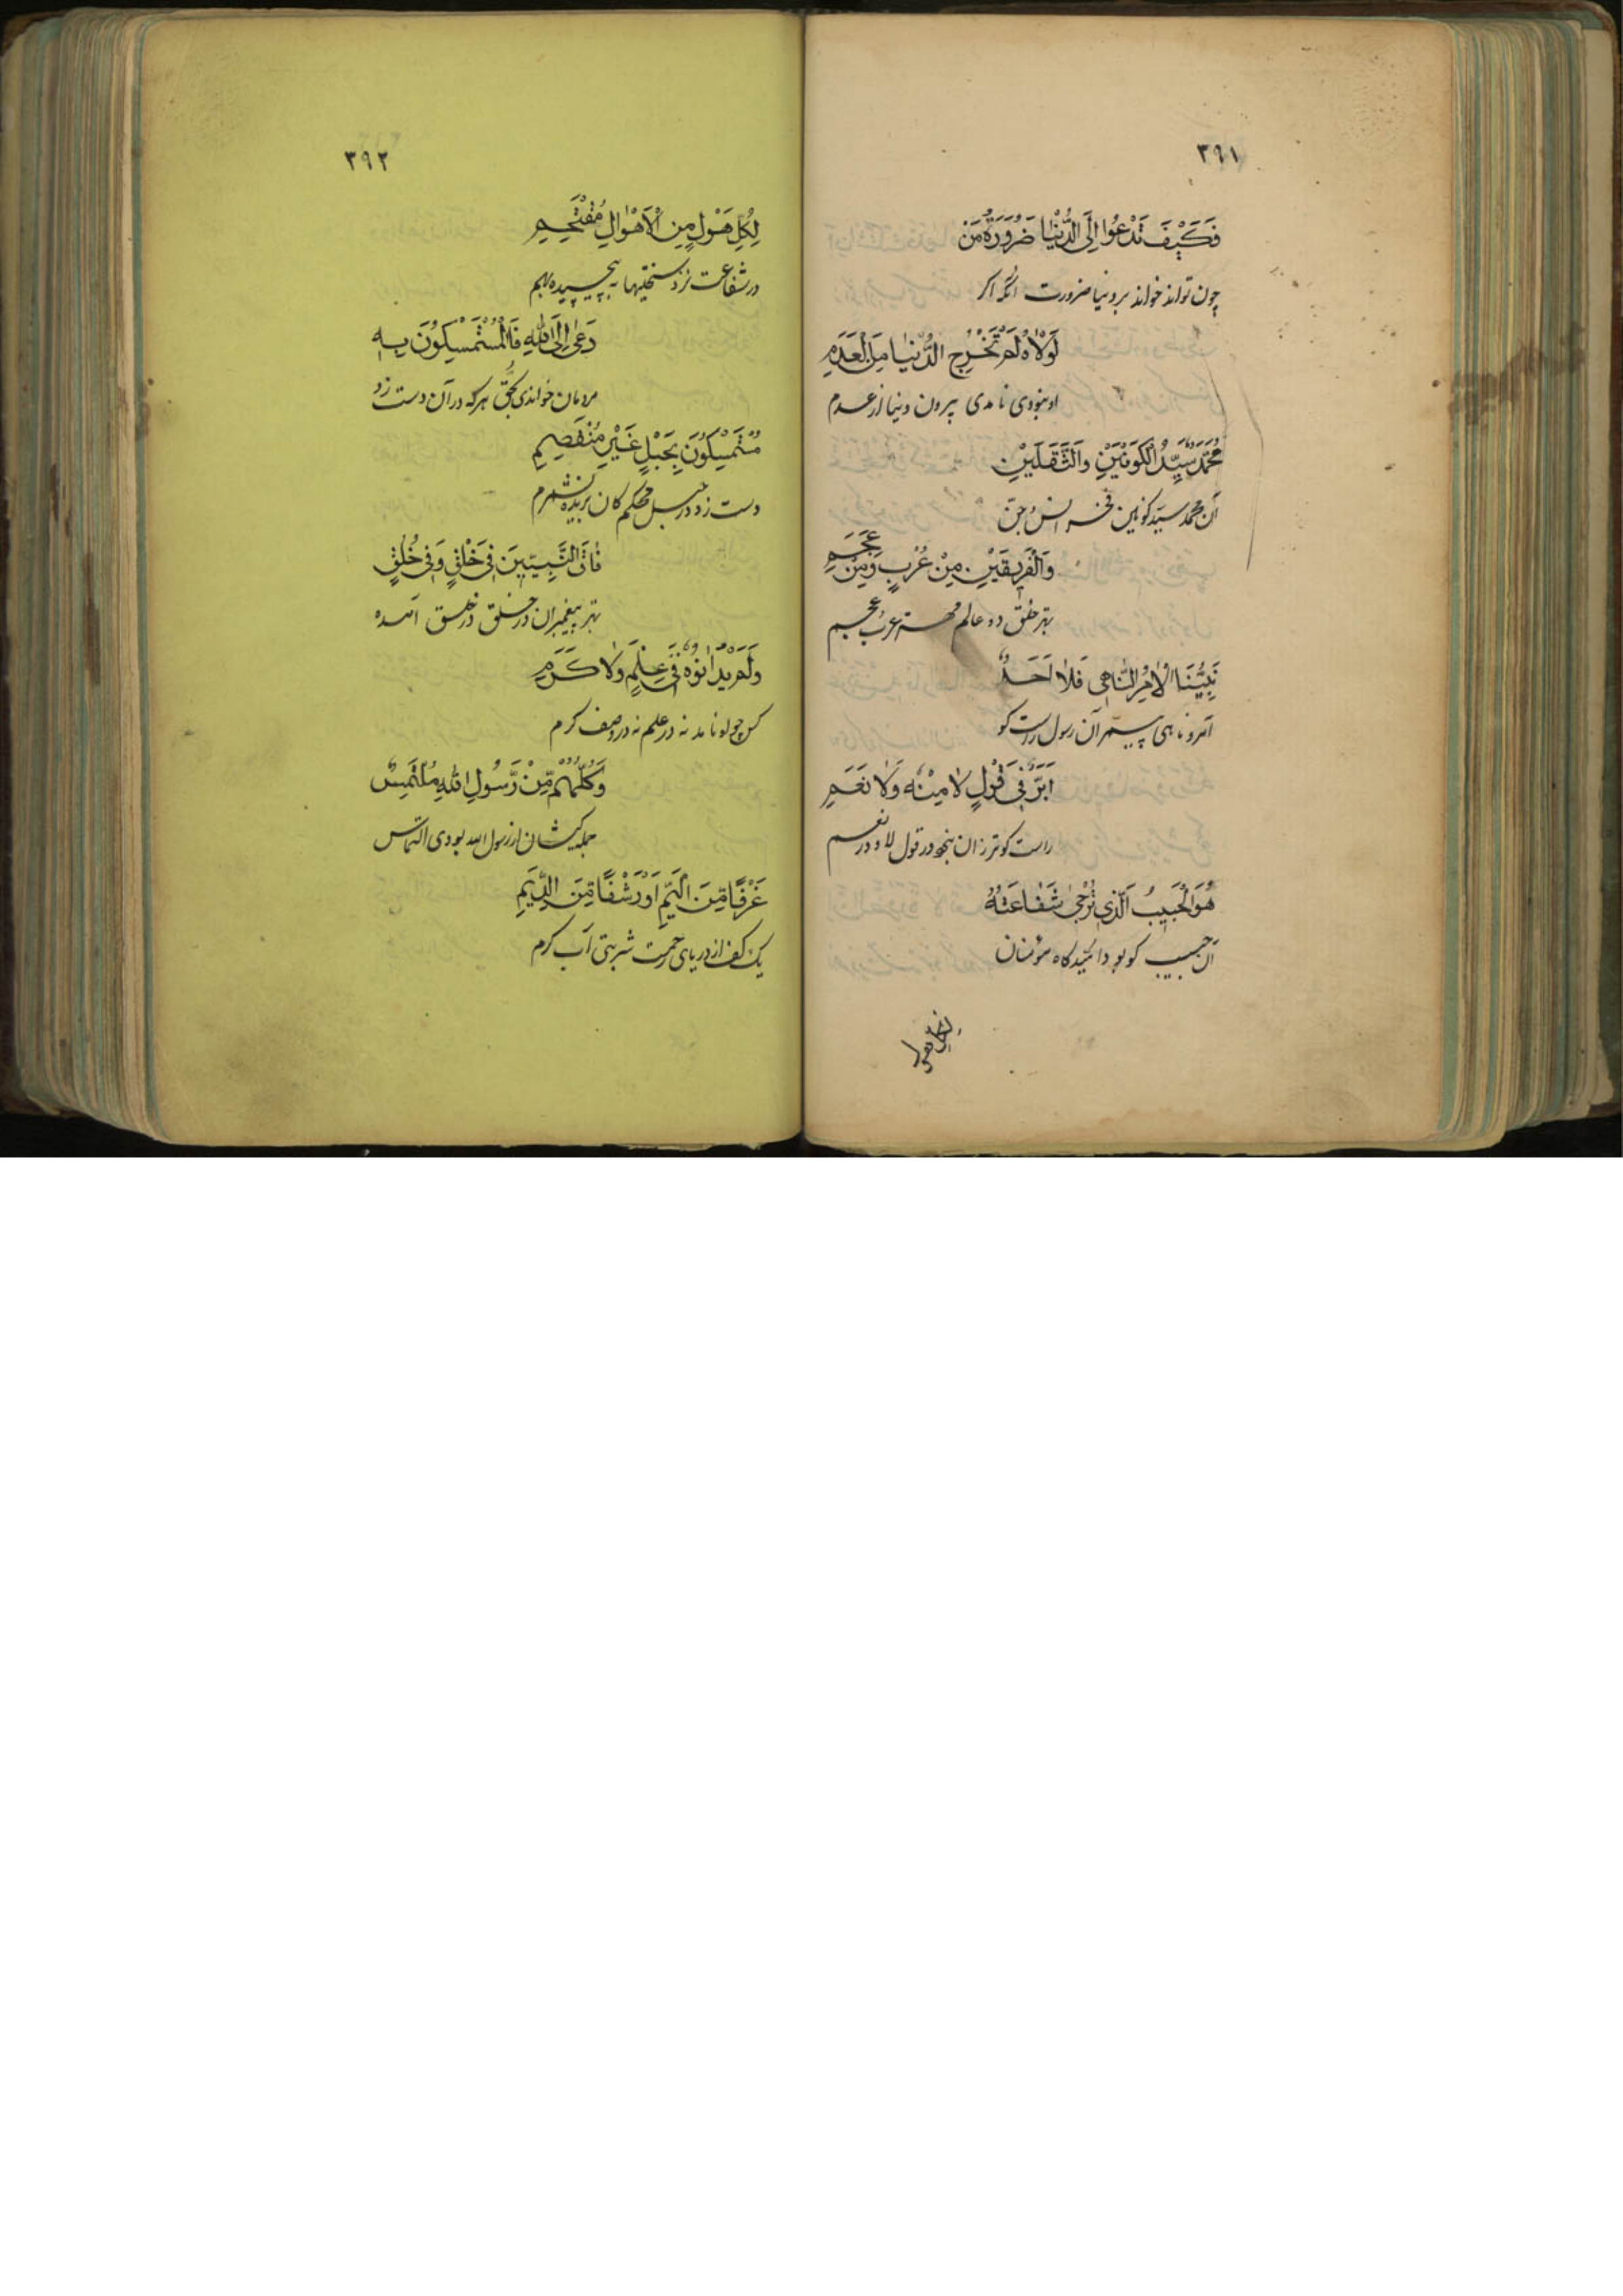 ٣٩١
فَكَيْفَ تَدْعُوا اِلَى الدُّنْيَا ضَرُورَةُ مَنْ
چون تواند خواند بر دنیا ضرورت آنکه اکر
لَوْلَاهُ لَمْ تَخْرُجِ الدُّنْيَا مِنَ الْعَدَمِ
او نبودی نامدی بیرون دنیا از عدم
مُحَمَّدٌ سَيِّدُ الْكَوْنَيْنِ وَالثَّقَلَيْنِ
آن محمد سید کونین فخر انس و جن
وَالْفَرِيقَيْنِ مِنْ عُرْبٍ وَمِنْ عَجَمِ
بهتر خلق دو عالم مهتر عرب و عجم
نَبِيُّنَا الْاٰمِرُ النَّاهِي فَلَا اَحَدٌ
آمر و ناهی پیمبر آن رسول راست کو
اَبَرُّ فِي قَوْلِ لَا مِنْهُ وَلَا نَعَمِ
راست کوتر زان نبود در قول لا و در نعم
هُوَ الْحَبِيبُ الَّذِي تُرْجٰى شَفَاعَتُهُ
آن حبیب کو بود امیدکاه مؤمنان
لِكُلِّ هَوْلٍ
٣٩٢
لِكُلِّ هَوْلٍ مِنَ الْاَهْوَالِ مُقْتَحِمِ
در شفاعت نزد سختیها به پیچیده بهم
دَعٰى اِلَى اللّٰهِ فَالْمُسْتَمْسِكُونَ بِهِ
مردمان خواندی بحق هرکه در آن دست زد
مُسْتَمْسِكُونَ بِحَبْلٍ غَيْرِ مُنْفَصِمِ
دست زد در حبل محکم کان بریده نشد
فَاقَ النَّبِيِّينَ فِي خَلْقٍ وَفِي خُلُقٍ
بهتر پیغمبران در خلق و در خلق آمده
وَلَمْ يُدَانُوهُ فِي عِلْمٍ وَلَا كَرَمِ
کس چو او نامد نه در علم نه در وصف کرم
وَكُلُّهُمْ مِّنْ رَّسُولِ اللّٰهِ مُلْتَمِسٌ
جمله کیشان از رسول الله بودی التماس
غَرْفًا مِّنَ الْيَمِّ اَوْ رَشْفًا مِّنَ الدِّيَمِ
یک کف از دریای رحمت شربتی آب کرم